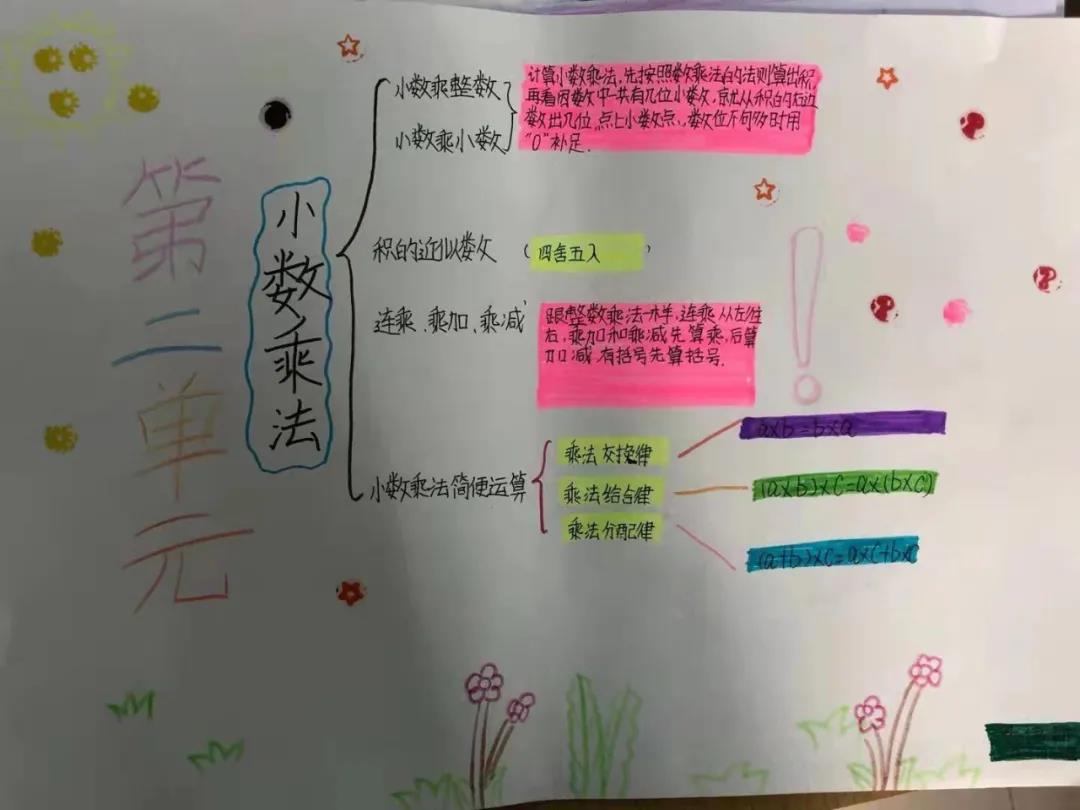 第二单元
小数乘法
小数乘整数
小数乘小数
计算小数乘法，先按照整数乘法的法则算出积，
再看因数中一共有几位小数，就从积的右边
数出几位，点上小数点，数位不够多时用
“0”补足．
积的近似数（四舍五入）
连乘、乘加、乘减
跟整数乘法一样，连乘从左往
右，乘加和乘减先算乘，后算
加减，有括号先算括号．
小数乘法简便运算
乘法交换律
a×b=b×a
乘法结合律
(a×b)×c=a×(b×c)
乘法分配律
(a+b)×c=a×c+b×c